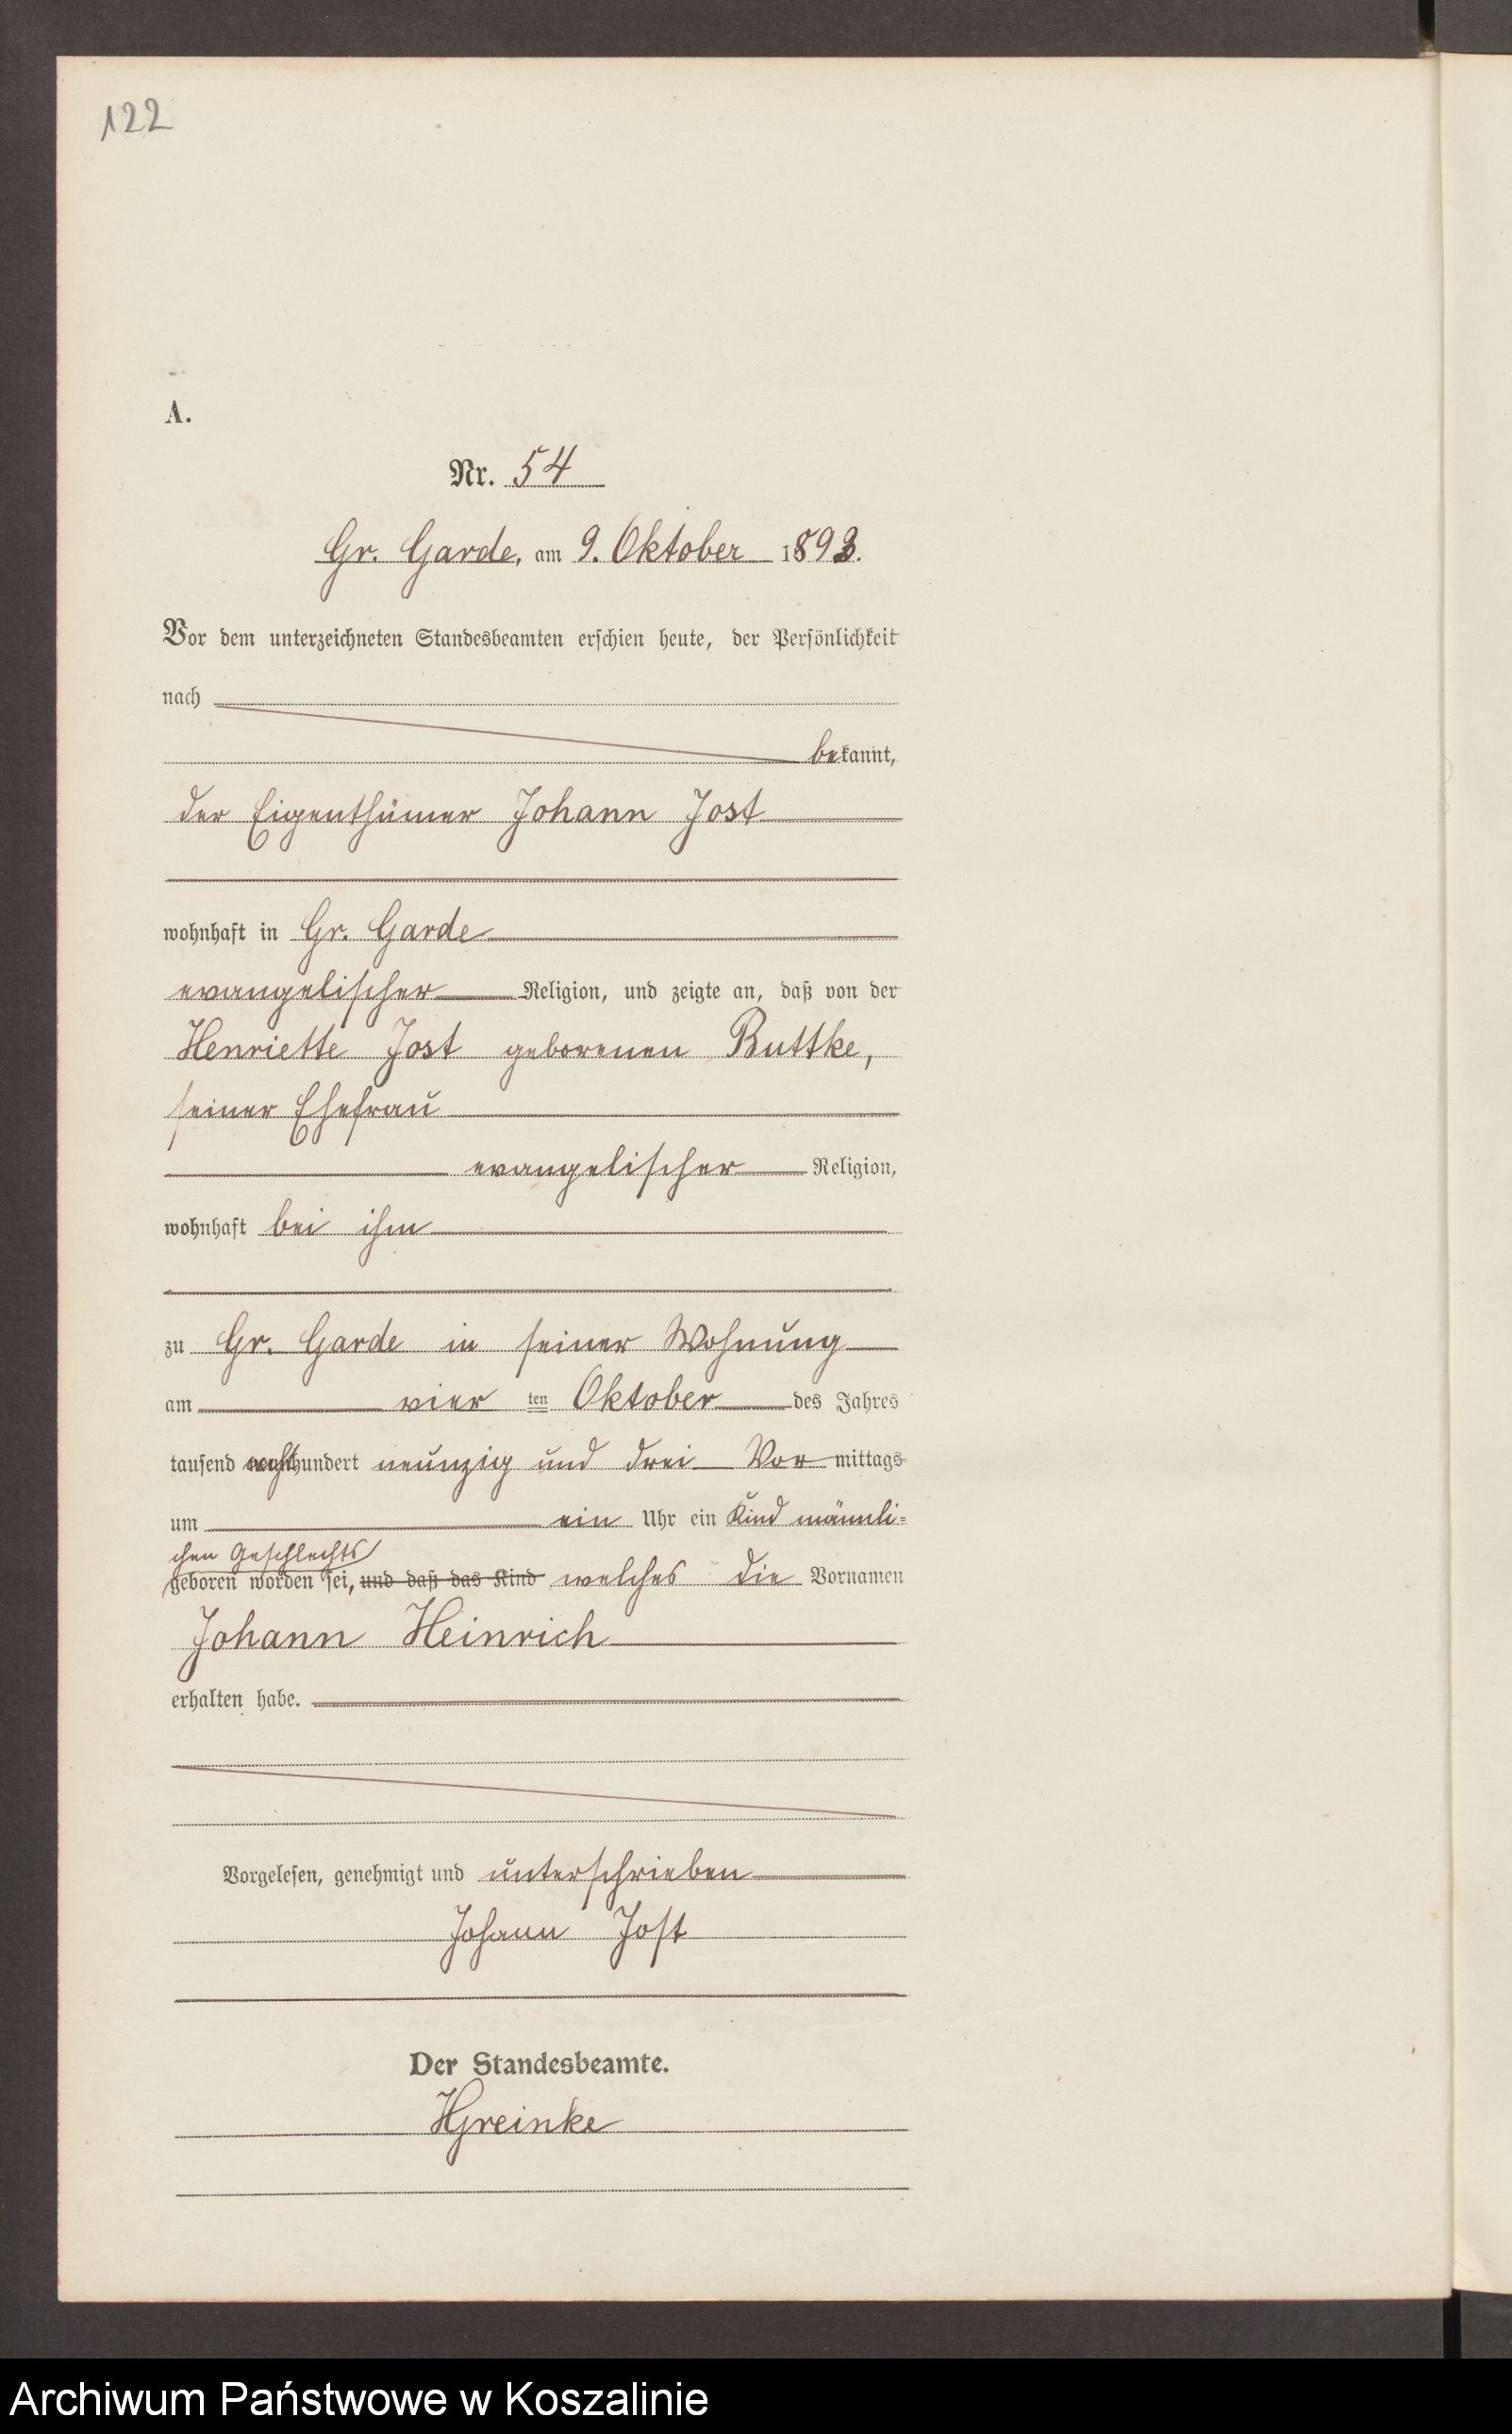 122
A.
Nr. 54
Gr. Garde, am 9. Oktober 1893.
Vor dem unterzeichneten Standesbeamten erschien heute, der Persönlichkeit
nach
bekannt,
der Eigenthümer Johann Jost
wohnhaft in Gr. Garde
evangelischer Religion, und zeigte an, daß von der
Henriette Jost geborenen Buttke,
seiner Ehefrau
evangelischer Religion,
wohnhaft bei ihm
zu Gr. Garde in seiner Wohnung
am vier ten Oktober des Jahres
tausend achthundert neunzig und drei Vor mittags
um ein Uhr ein Kind männli=
chen Geschlechts
geboren worden sei, und daß das Kind welches die Vornamen
Johann Heinrich
erhalten habe.
Vorgelesen, genehmigt und unterschrieben
Johann Jost
Der Standesbeamte.
HGreinke
Archiwum Państwowe w Koszalinie